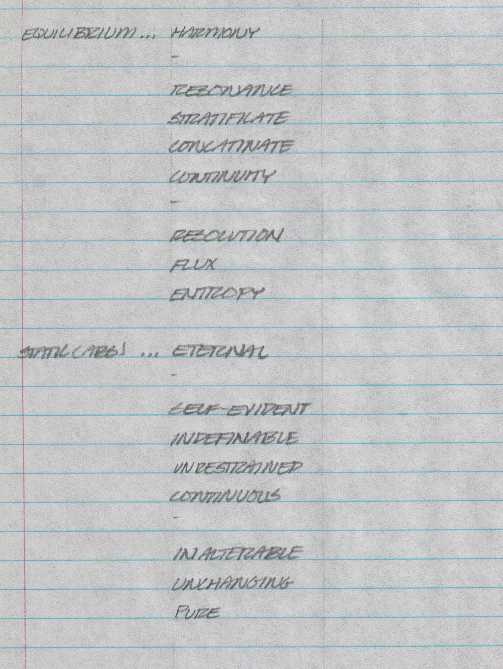 EQUILIBRIUM... HARMONY
-
REZONANCE
STRATIFICATE
CONCATINATE
CONTINUITY
-
REZOLUTION
FLUX
ENTROPY
STATIC (ABS) ... ETERNAL
-
SELF-EVIDENT
INDEFINABLE
UNRESTRAINED
CONTINUOUS
-
INALTERABLE
UNCHANGING
PURE